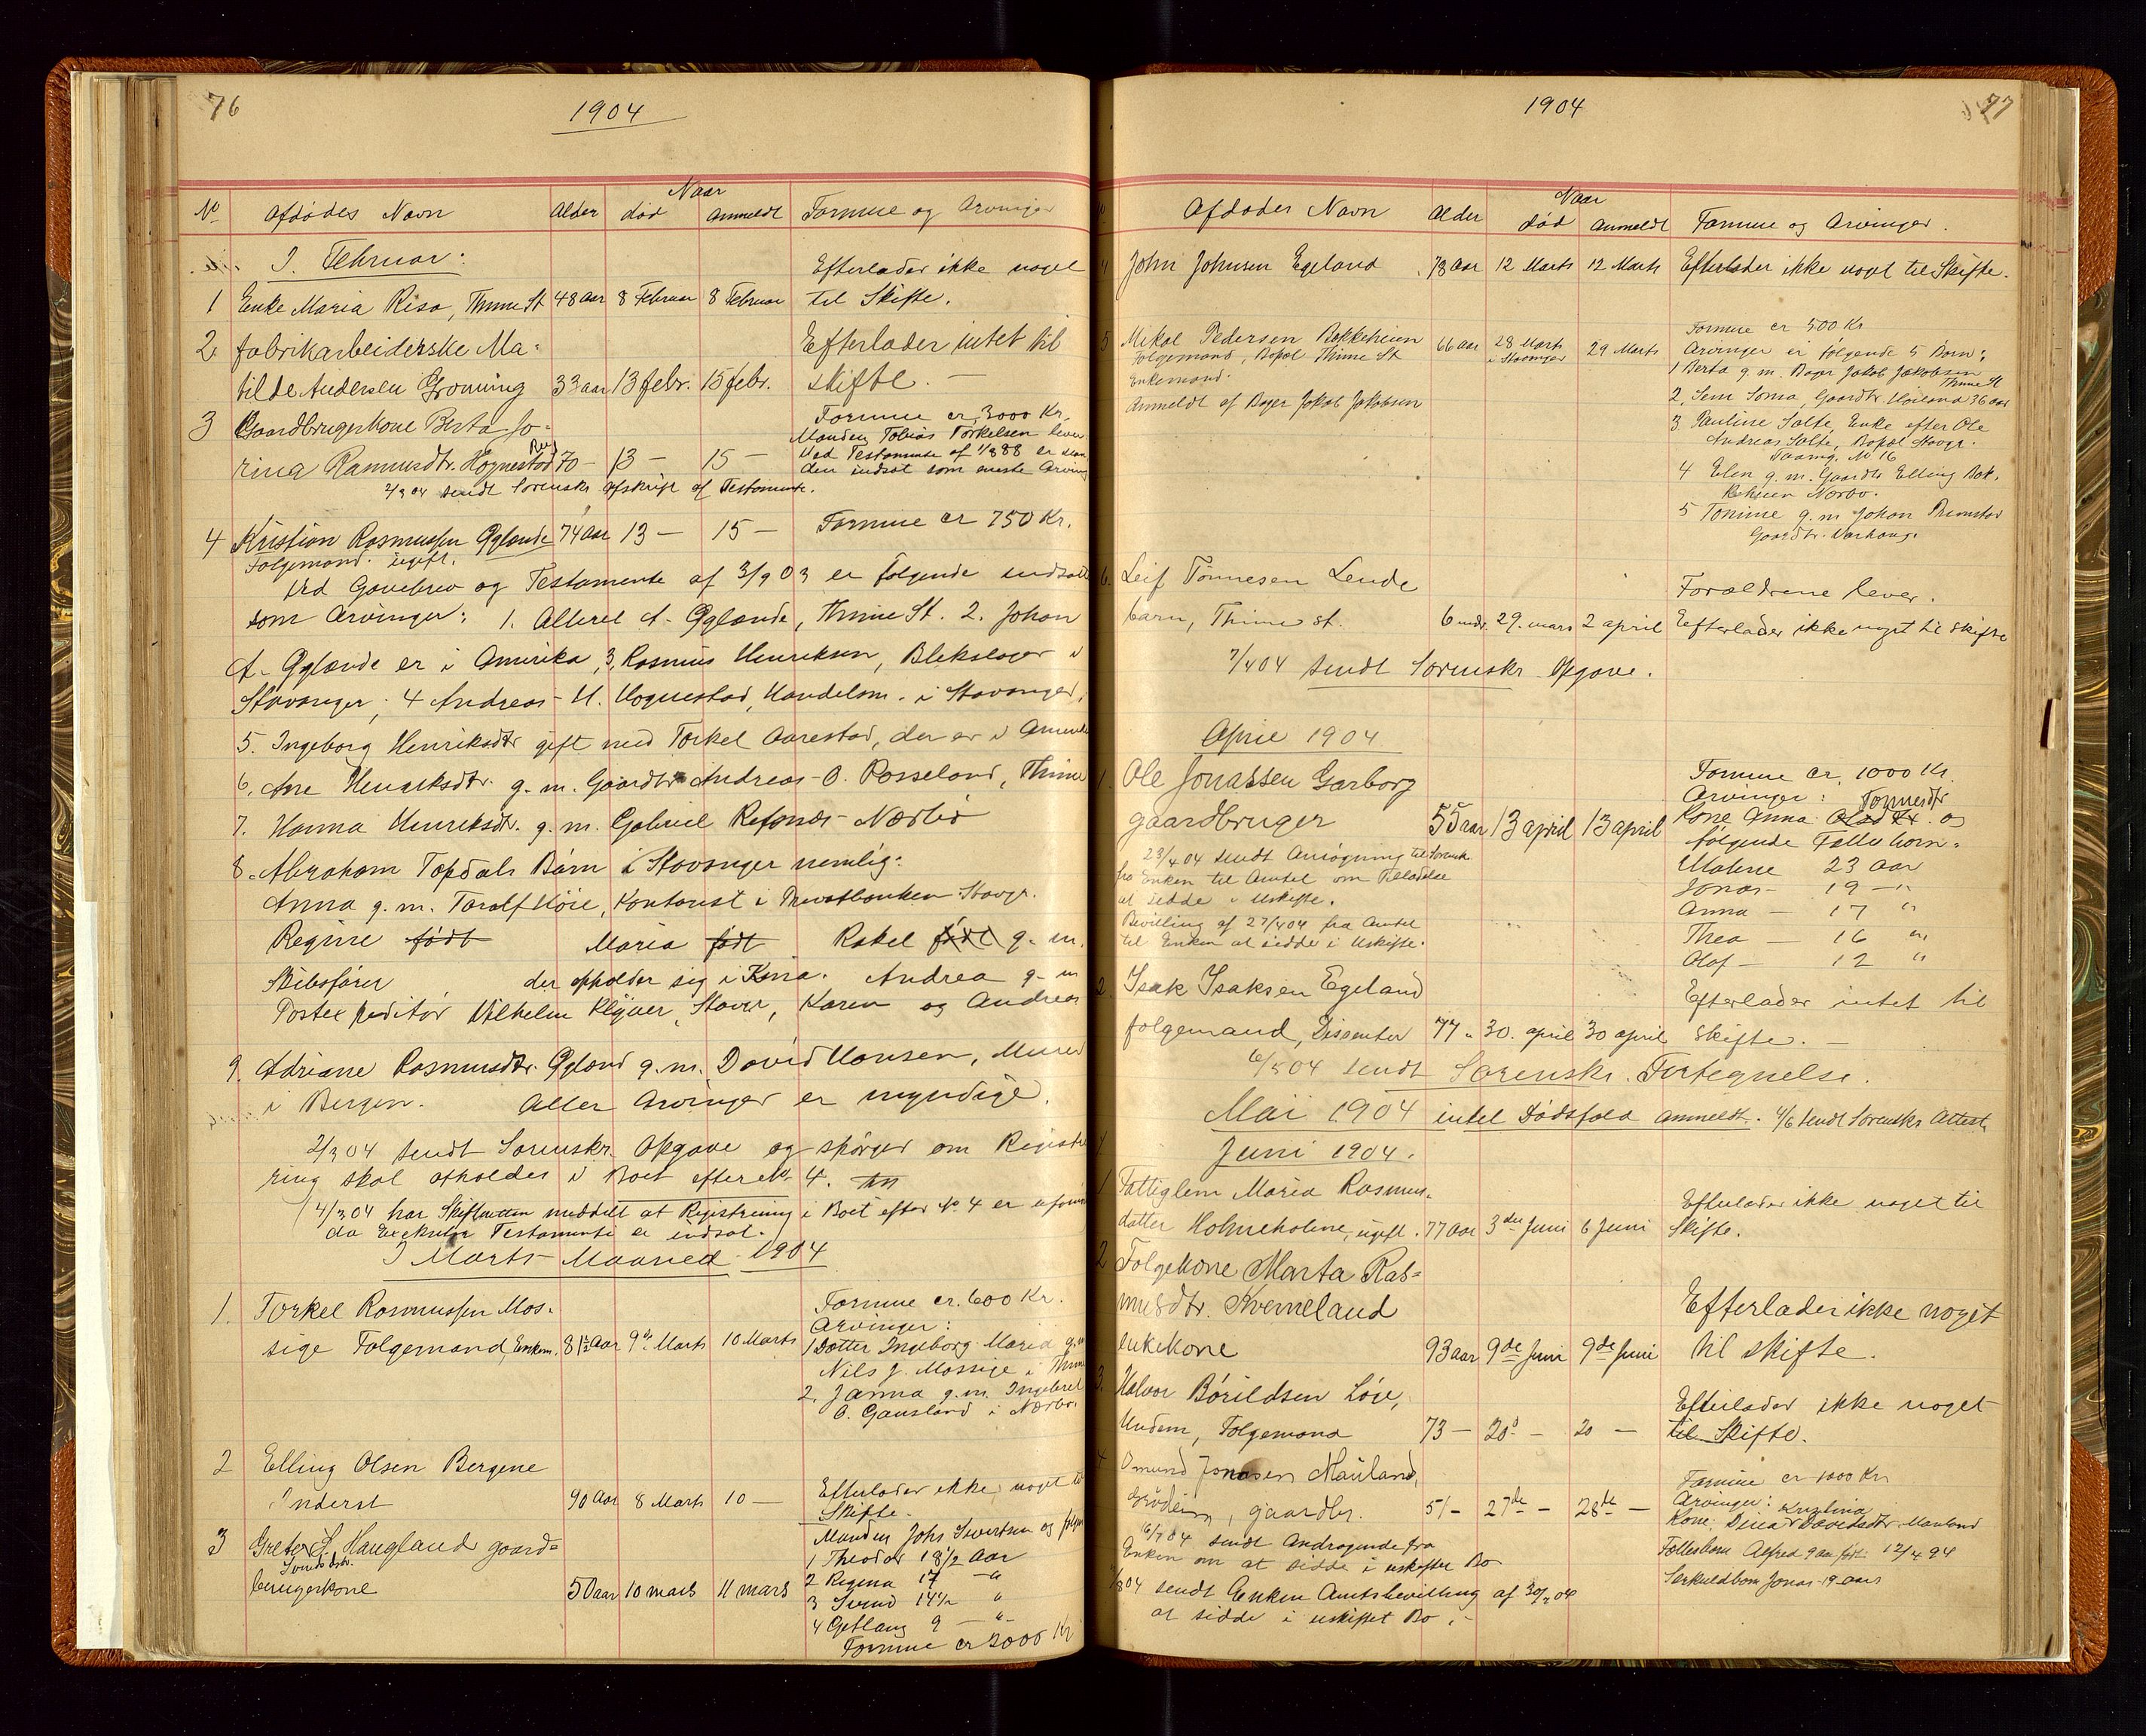 76
1904
Naar
No Afdødes Navn Alder død Anmeldt Formue og Arvinger
I. Februar:
Efterlader ikke noget
1 Enke Maria Risa, Thime St 48 aar 8 Februar 8 Februar til Skifte.
2. fabrikarbeiderske Ma-
Efterlader intet til
tilde Andersen Groning 33 aar 13 febr. 15 febr. skifte. —
3 Gaardbrugerkone Berta Jo-
Formue er 3000 Kr.
Manden Tobias Torkelsen lever.
rina Rasmusdtr. Hognestad 70 — 13 — 15 —
Ved Testamente af 1/8 88 er
den indsat som eneste Arving
2/3 04 sendt Sorenskr afskrift af Testamente.
4 Kristian Rasmussen Gylande 74 Aar 13 — 15 — Formue er 750 Kr.
Folgemand. ugift.
Ved Gavebrev og Testamente af 3/9 03 er følgende indsatte
som Arvinger: 1. Allerel A. Gylande, Thime St. 2. Johan
A. Gylande er i Amerika, 3, Rasmus Henriksen, Blekslager i
Stavanger; 4 Andreas H. Hognestad, Handelsm. i Stavanger;
5. Ingeborg Henriksdtr gift med Torkel Aarestad, der er i Amerika
6. Ane Henriksdtr. g. m. Gaardbr Andreas O. Rosseland, Thime
7. Hanna Henriksdtr. g. m. Gabriel Refsnæs Nærbø
8. Abraham Topdals Børn i Stavanger nemlig:
Anna g. m. Taralf Høie, Kontorist i Privatbanken Stavgr.
Regine født Maria født Rakel født g. m.
Skibsfører der opholder sig i Kina. Andrea g. m
Postexpeditør Vilhelm Kljver, Stavgr, Karen og Andreas
9. Adriane Rasmusdtr. Gyland g. m. David Hansen, Murer
i Bergen. Aller Arvinger er myndige.
2/3 04 sendt Sorenskr. Opgave og spørger om Registre
ring skal afholdes i Boet efter No 4.
14/3 04 har Skifteretten meddelt at Registrering i Boet efter No 4 er
da Exekutor Testamente er indsat.
I Marts Maaned 1904
1. Torkel Rasmussen Mos-
Formue er. 600 Kr.
Arvinger:
sige Folgemand, Enkem. 81½ Aar 9de Marts 10 Marts 1 Datter Ingeborg Maria g. m
Nils J. Mossige i Thime
2. Janna g. m. Ingebret
O. Gausland i Nærbø.
2 Elling Olsen Bergene
Inderst 90 Aar 8 Marts 10 — Efterlader ikke noget til
Skifte.
3 Grete S. Haugland gaard-
Svendsdtr.
Manden Johs Sivertsen og
1 Theodor 18½ Aar
brugerkone 50 aar 10 mars 11 mars 2 Regina 17 — "
3 Svend 14½ "
4 Getlaug 9 — "
Formue er 2000 Kr
1904
77
Naar
Afdødes Navn Alder død Anmeldt Formue og Arvinger.
4 John Johnsen Egeland 78 Aar 12 Marts 12 Marts Efterlader ikke noget til Skifte.
Formue er 500 Kr
5 Mikal Pedersen Bakkehuen 66 aar 28 Marts i Stavanger 29 Marts Arvinger er følgende 5 Børn:
Folgemand, Bopæl Thime St
Enkemand.
1 Berta g. m. Bager Jakob Jakobsen
Thime St
Anmeldt af Bager Jakob Jakobsen
2, Sem Soma, Gaardbr. Høiland 36 aar
3 Pauline Salte, Enke efter Ole
Andreas Salte, Bopæl Stavgr.
No 16
4 Elen g. m. Gaardbr Elling Bak-
kehuen Nærbø.
5 Tonine g. m Johan Bremstad
Gaardbr. Varhaug.
6. Leif Tønnesen Lende
Forældrene lever.
barn, Thime st. 6 mdr. 29. mars 2 april Efterlader ikke noget til skifte
7/4 04 sendt Sorenskr Opgave.
April 1904
1. Ole Jonassen Garborg
Formue er 1000 Kr.
Arvinger: Tonnesdtr
gaardbruger 55 aar 13 april 13 april Kone Anna Olsdtr. og
23/4 04 sendt Ansøgning til Sorensk
fra Enken til Amtet om Tilladelse
at sidde i Uskifte.
følgende Fællesbørn.
Malene 23 aar
Jonas — 19 — "
Anna — 17 "
Thea — 16 "
Olaf — 12 "
Bevilling af 27/4 04 fra Amtet
til Enken at sidde i Uskifte.
2. Isak Isaksen Egeland
Efterlader intet til
folgemand, Dissenter 77 " 30. april 30 april skifte. —
6/5 04 sendt Sorenskr. Fortegnelse.
Mai 1904 intet Dødsfald anmeldt. 4/6 sendt Sorenskr Attest
Juni 1904.
1 Fattiglem Maria Rasmus-
Efterlader ikke noget til
datter Holmeholene, ugift. 77 aar 3die Juni 6 Juni Skifte.
2 Folgekone Marta Ras-
musdtr. Kverneland
Efterlader ikke noget
enkekone 93 aar 9de Juni 9de Juni til skifte.
3. Halvor Børildsen Løge,
Efterlader ikke noget
Undem, Folgemand 73 — 20de — 20 — til Skifte.
4 Omund Jonasen Mauland,
Formue er 1000 Kr
Arvinger: Kristina
gaardbr. 51 — 27de — 28de — Kone: Dina Davidsdtr. Mauland
16/7 04 sendt Andragende fra
Enken om at sidde i uskiftet Bo
Fællesbarn Alfred 9 aar født 12/4 94
Særkuldbarn Jonas 19 aar
/8 04 sendt Enken Amtsbevilling af 30/7 04
at sidde i uskiftet Bo.